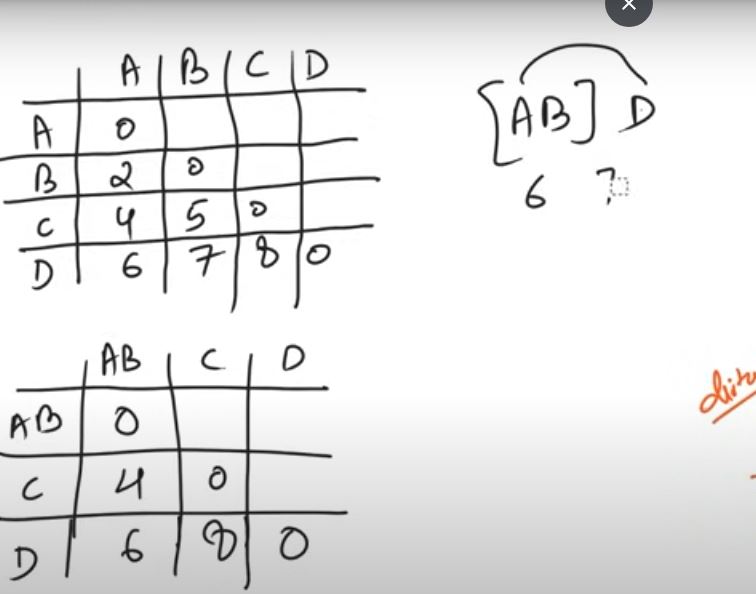 A B C D
A 0
B 2 0
C 4 5 0
D 6 7 8 0
[AB] D
6 7
AB C D
AB 0
C 4 0
D 6 8 0